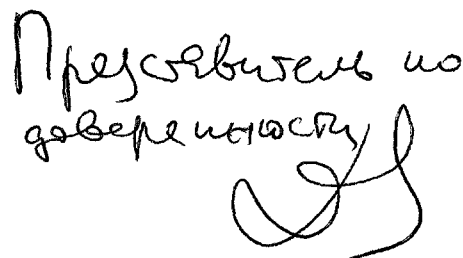 Представитель по
доверенности